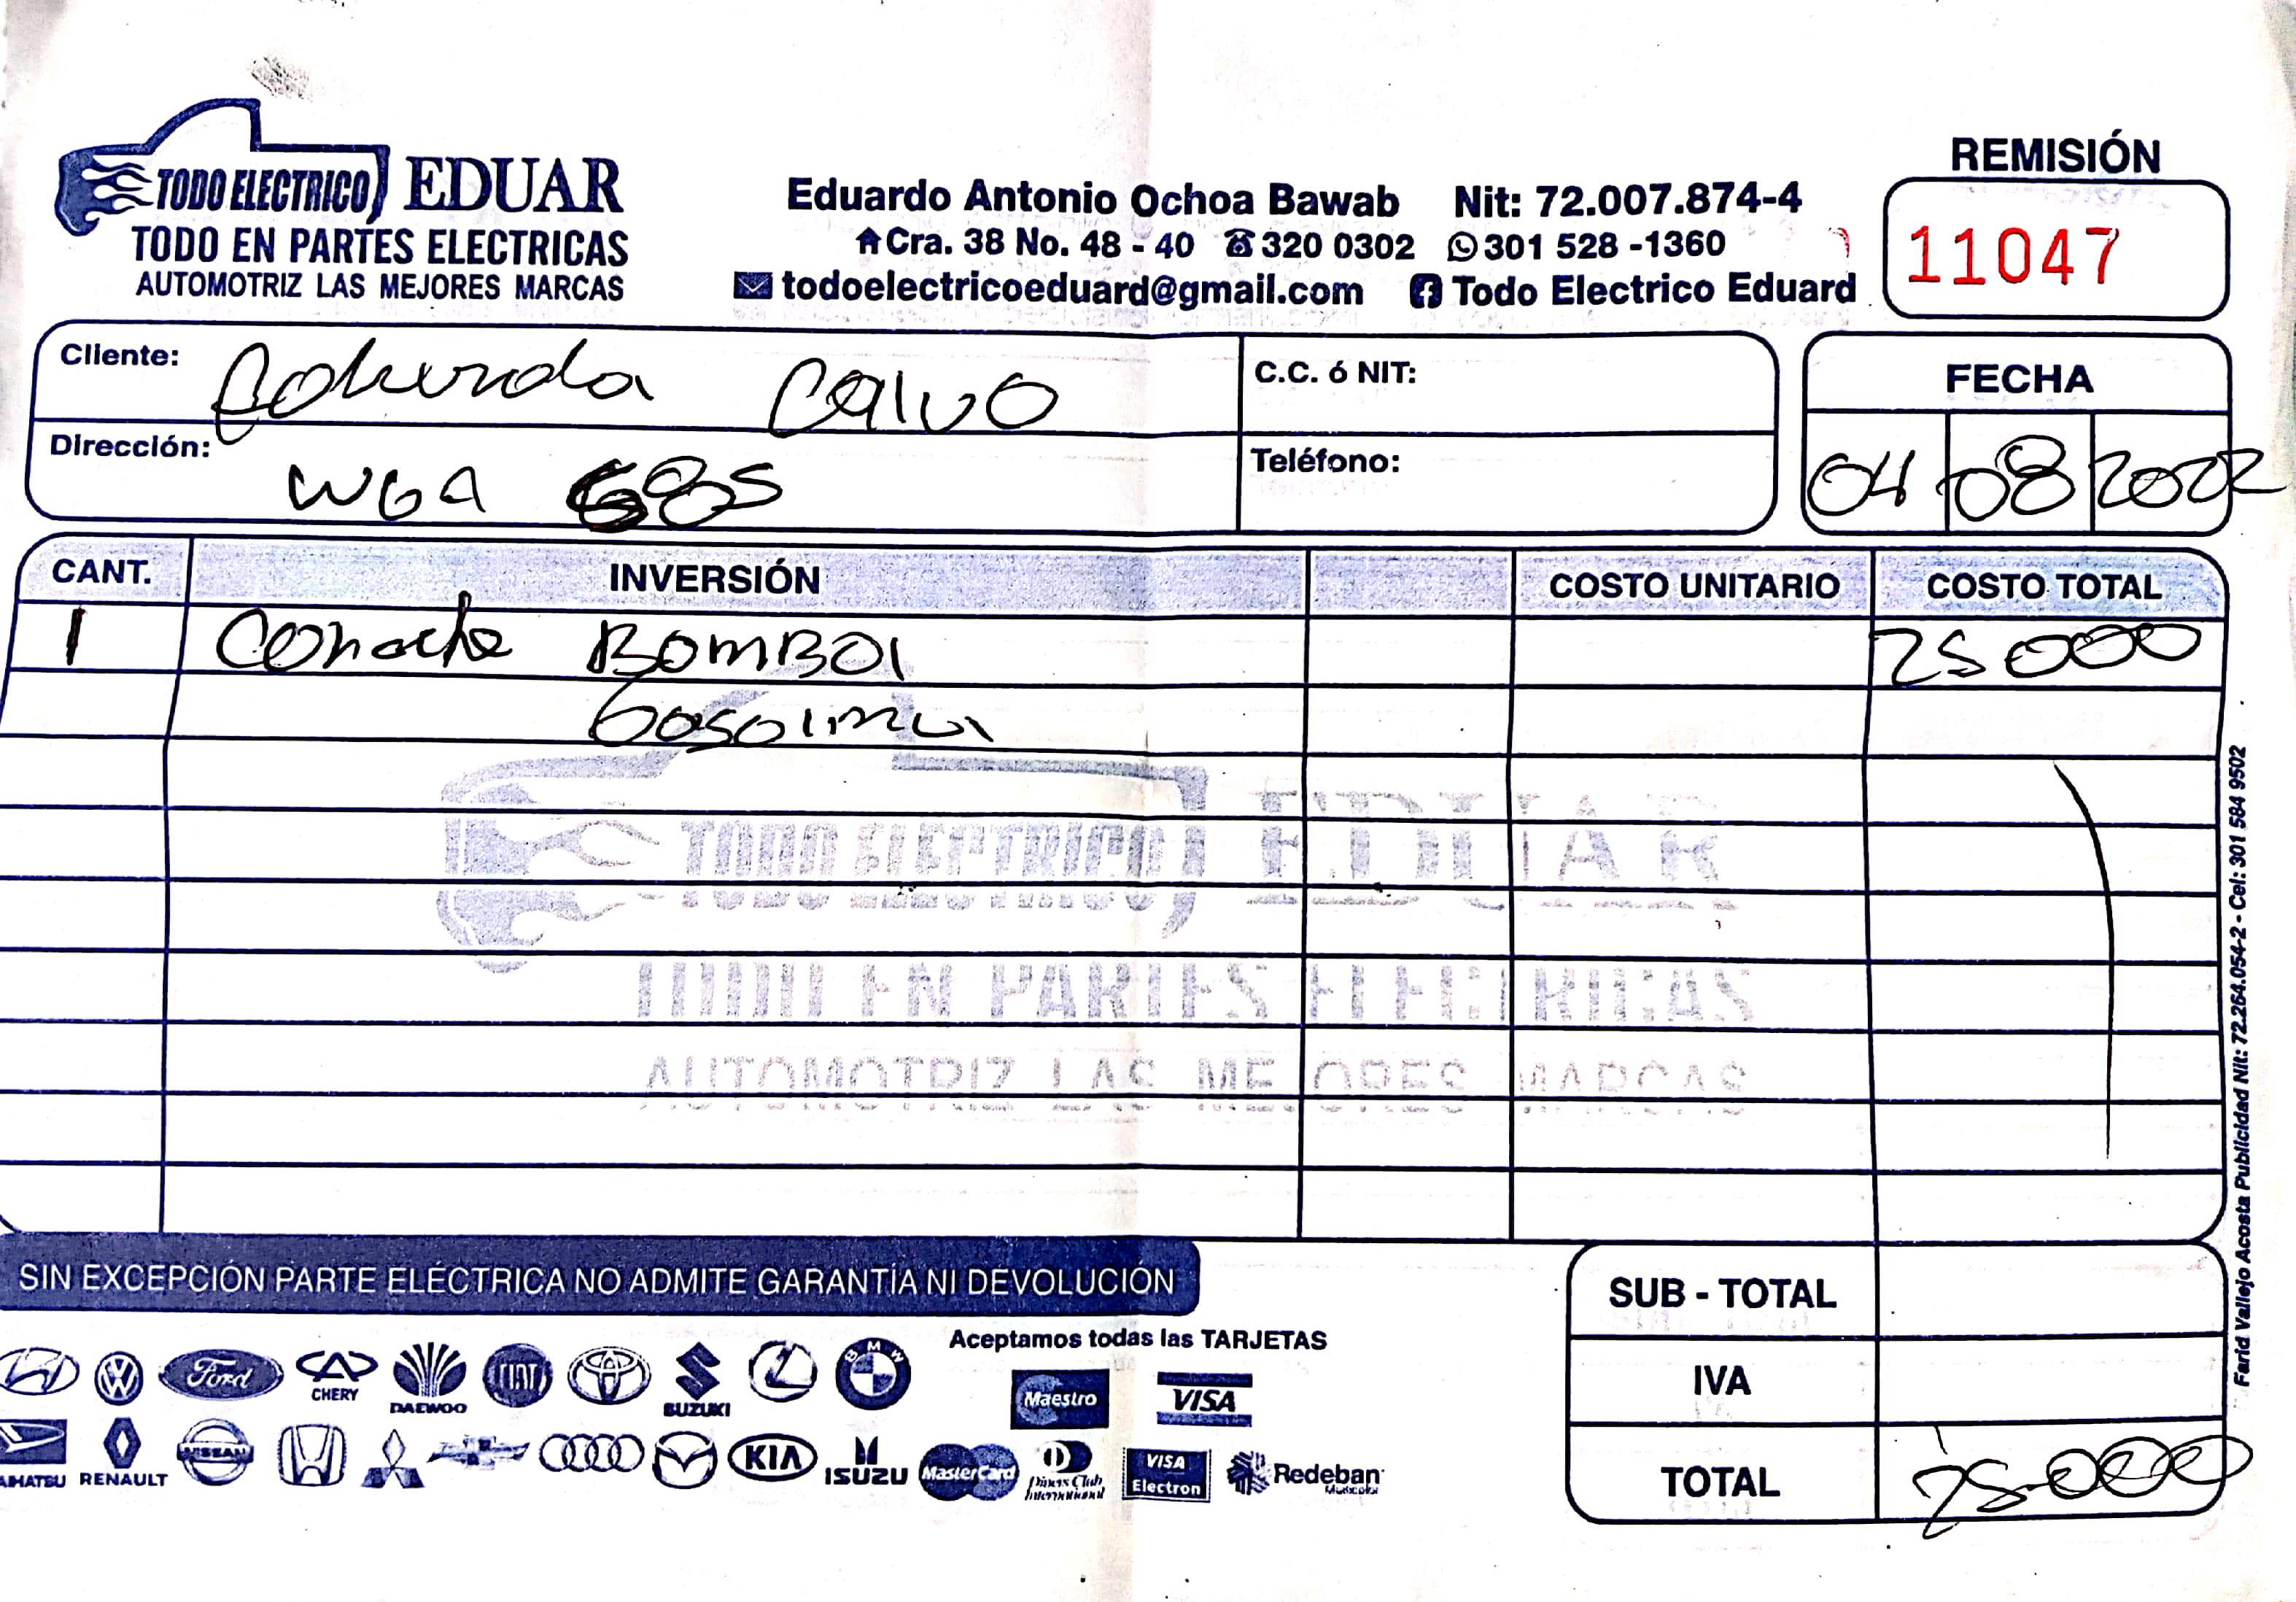 TODO ELECTRICO EDUAR
TODO EN PARTES ELECTRICAS
AUTOMOTRIZ LAS MEJORES MARCAS
Eduardo Antonio Ochoa Bawab Nit: 72.007.874-4
Cra. 38 No. 48 - 40 320 0302 301 528 -1360
todoelectricoeduard@gmail.com Todo Electrico Eduard
REMISIÓN
11047
Cliente: Calvo
C.C. ó NIT:
Dirección: WGA 685
Teléfono:
FECHA
04 08 2022
CANT. INVERSIÓN COSTO UNITARIO COSTO TOTAL
1 Bomba 25000
Gasolina
TODO ELECTRICO EDUAR
TODO EN PARTES ELECTRICAS
AUTOMOTRIZ LAS MEJORES MARCAS
Farid Vallejo Acosta Publicidad Nit: 72.264.054-2 - Cel: 301 584 9502
SIN EXCEPCIÓN PARTE ELÉCTRICA NO ADMITE GARANTÍA NI DEVOLUCIÓN
SUB - TOTAL
IVA
TOTAL 25.000
Aceptamos todas las TARJETAS
Ford CHERY DAEWOO FIAT SUZUKI BMW Maestro VISA
AIHATSU RENAULT NISSAN KIA ISUZU MasterCard Diners Club International VISA Electron Redeban Multicolor